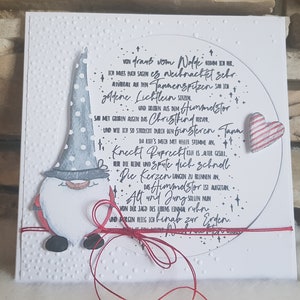 Von drauss vom Walde komm ich her,
ich muss euch sagen es weihnachtet sehr
Allüberall auf den Tannenspitzen sah ich
goldene Lichtlein sitzen,
und droben aus dem Himmelstor
sah mit grossen Augen das Christkind hervor,
und wie ich so strolcht durch den finsteren Tann
da rief's mich mit heller Stimme an,
Knecht Ruprecht rief es, alter Gesell,
hebe die Beine und spute dich schnell
Die Kerzen fangen zu brennen an,
das Himmelstor ist aufgetan,
Alt und Jung sollen nun
von der Jagd des Lebens einmal ruhn
und morgen flieg ich hinab zur Erden